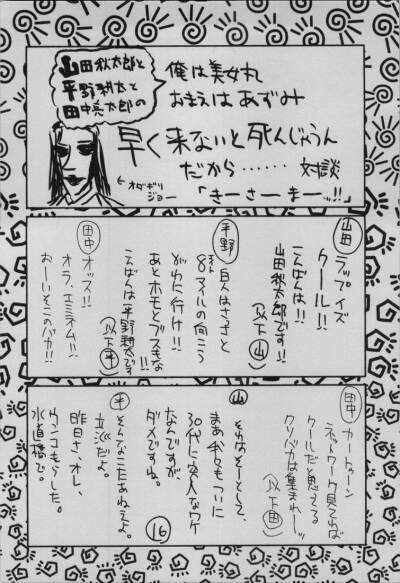 山田秋太郎と
平野耕太と
田中亮太郎の
俺は美女丸
おまえはあずみ
早く来ないと死んじゃうん
だから……対談
「きーさーまーッ!!」
←オダギリ
ジョー
山田
ラップイズ
クール!!
こんばんは!!
山田秋太郎です!!
(以下山)
平野
白人はさっさと
8マイルの向こう
がわに行け!!
あとホモとブスきな
こんばんは平野耕太です!!
(以下平)
田中
オッス!!
オラ、エミネム!!
おーいそこのバカ!!
田中
カートゥーン
ネットワーク見てれば
クールだと思えてる
クソバカは集まれーッ
(以下田)
山
それはそーとして、
まあ我々もついに
30代に突入なワケ
なんですが、
ダメですね。
平
そんなこたあねえよ。
立派だよ。
昨日さ、オレ、
ウンコもらした。
水道橋で。
16